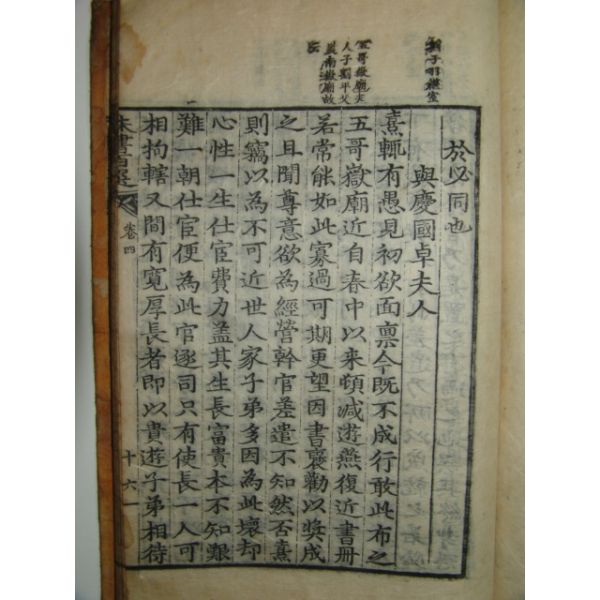 劉子明樂室
五哥嶽廟夫
人子劉平父
監南嶽廟故
云
於必同也
與慶國卓夫人
熹輒有愚見初欲面稟今既不成行敢此布之
五哥嶽廟近自春中以来頓減遊燕復近書冊
若常能如此寡過可期更望因書褒勸以奬成
之且聞尊意欲為經營幹官差遣不知然否熹
則竊以為不可近世人家子弟多因為此壞却
心性一生仕宦費力盖其生長富貴本不知艱
難一朝仕宦便為此官逐司只有使長一人可
相拘轄又間有寬厚長者即以貴遊子弟相待
朱書百選
卷四
十六